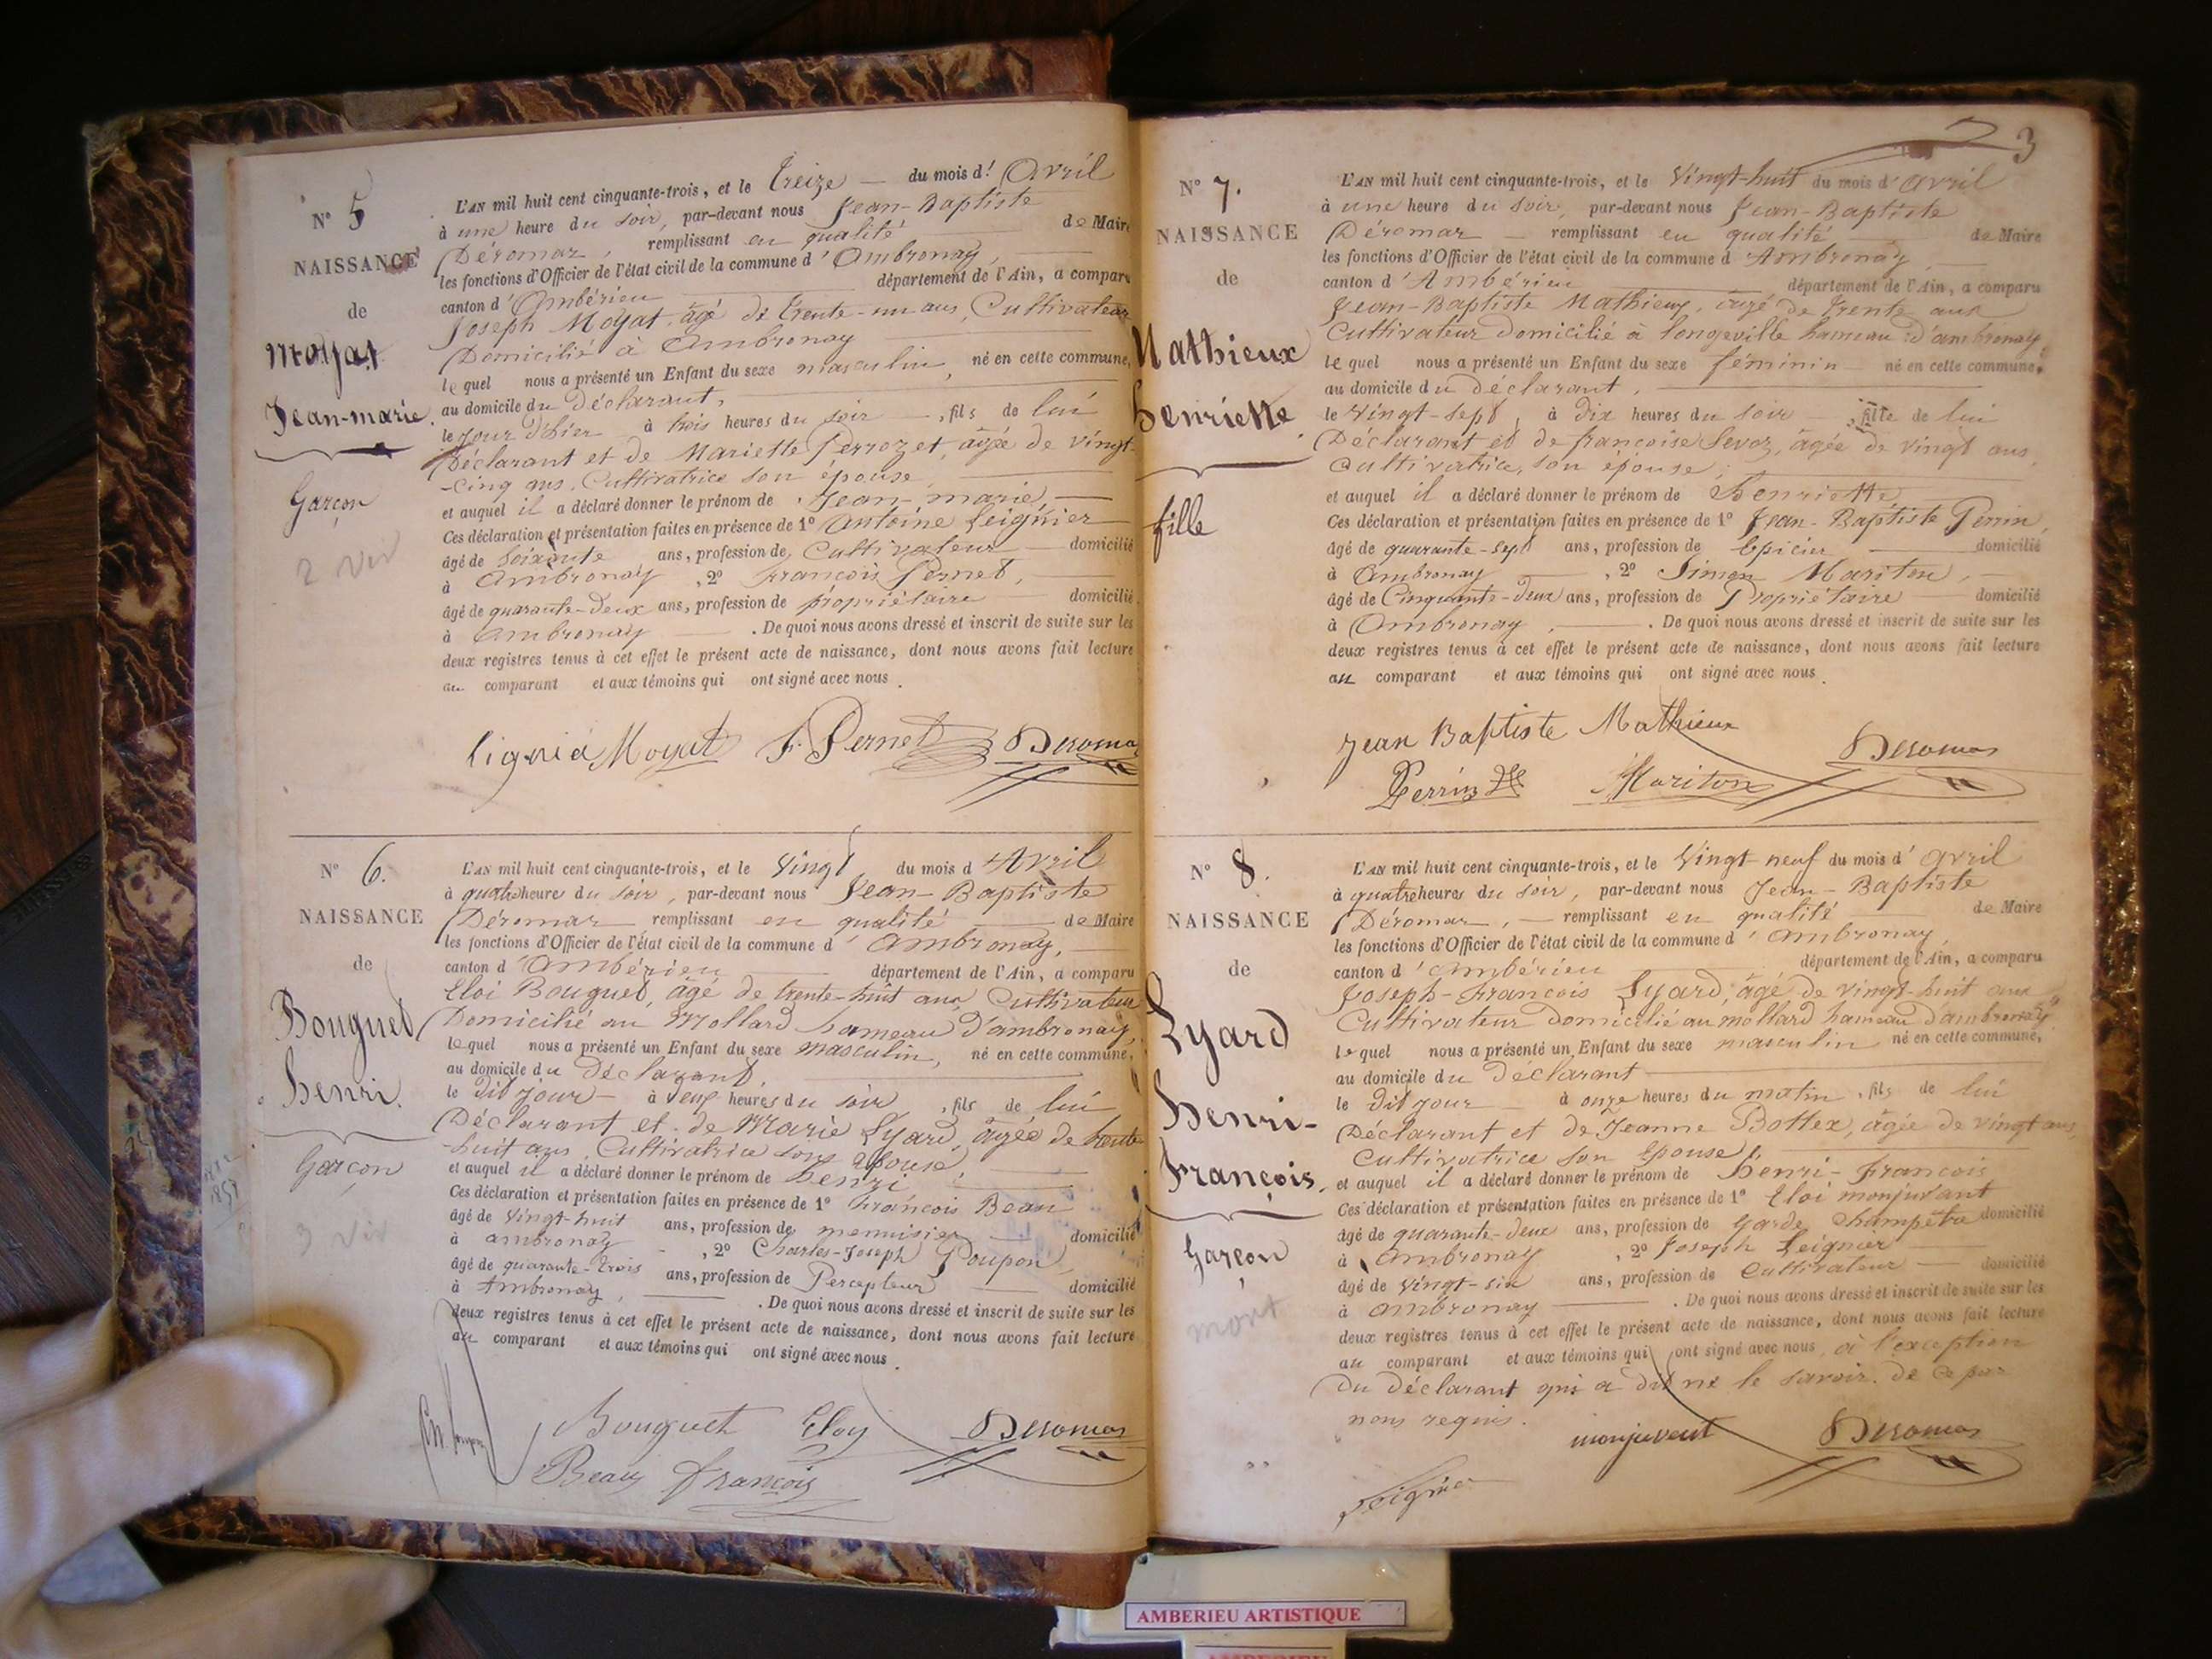 N° 5
NAISSANCE
de
Moyat
Jean-marie.
Garçon
L'AN mil huit cent cinquante-trois, et le treize — du mois d' Avril
à une heure du soir, par-devant nous Jean-Baptiste
Déromas, remplissant en qualité de Maire
les fonctions d'Officier de l'état civil de la commune d' Ambronay,
canton d' Ambérieu département de l'Ain, a comparu
Joseph Moyat, âgé de trente-un ans, Cultivateur
Domicilié à Ambronay
lequel nous a présenté un Enfant du sexe masculin, né en cette commune,
au domicile du Déclarant,
le jour d'hier à trois heures du soir —, fils de lui
Déclarant et de Mariette Perrozet, âgée de vingt-
-cinq ans, Cultivatrice son épouse,
et auquel il a déclaré donner le prénom de Jean-marie,
Ces déclaration et présentation faites en présence de 1° Antoine Leignier
âgé de soixante ans, profession de Cultivateur — domicilié
à Ambronay, 2° François Pernet,
âgé de quarante-deux ans, profession de propriétaire domicilié
à Ambronay. De quoi nous avons dressé et inscrit de suite sur les
deux registres tenus à cet effet le présent acte de naissance, dont nous avons fait lecture
au comparant et aux témoins qui ont signé avec nous.
lignié Moyat F. Pernet Deromas
N° 6.
NAISSANCE
de
Bouguet
henri.
Garçon
L'AN mil huit cent cinquante-trois, et le Vingt du mois d' Avril
à quatre heures du soir, par-devant nous Jean-Baptiste
Déromas remplissant en qualité de Maire
les fonctions d'Officier de l'état civil de la commune d' Ambronay,
canton d' Ambérieu département de l'Ain, a comparu
Eloi Bouguet, âgé de trente-huit ans Cultivateur
Domicilié au Mollard hameau d'ambronay,
lequel nous a présenté un Enfant du sexe masculin, né en cette commune,
au domicile du Déclarant,
le dit jour — à deux heures du soir, fils de lui
Déclarant et de Marie Lyard, âgée de trente-
-huit ans, Cultivatrice son épouse,
et auquel il a déclaré donner le prénom de henri
Ces déclaration et présentation faites en présence de 1° François Beau
âgé de vingt-huit ans, profession de menuisier domicilié
à ambronay, 2° Charles-Joseph Poupon,
âgé de quarante-trois ans, profession de Percepteur domicilié
à Ambronay, . De quoi nous avons dressé et inscrit de suite sur les
deux registres tenus à cet effet le présent acte de naissance, dont nous avons fait lecture
au comparant et aux témoins qui ont signé avec nous.
Bouguet Eloy Deromas
Beau François
3
N° 7.
NAISSANCE
de
Mathieux
henriette.
fille
L'AN mil huit cent cinquante-trois, et le Vingt-huit du mois d' avril
à une heure du soir, par-devant nous Jean-Baptiste
Déromas — remplissant en qualité de Maire
les fonctions d'Officier de l'état civil de la commune d' Ambronay
canton d' Ambérieu département de l'Ain, a comparu
Jean-Baptiste Mathieux, âgé de trente ans
Cultivateur domicilié à longeville hameau d'ambronay,
lequel nous a présenté un Enfant du sexe féminin né en cette commune,
au domicile du déclarant,
le vingt-sept, à dix heures du soir, fille de lui
Déclarant et de françoise Sevoz, âgée de vingt ans,
Cultivatrice, son épouse,
et auquel il a déclaré donner le prénom de henriette
Ces déclaration et présentation faites en présence de 1° Jean-Baptiste Perrin,
âgé de quarante-sept ans, profession de Epicier domicilié
à Ambronay, 2° Simon Mariton,
âgé de Cinquante-deux ans, profession de Propriétaire domicilié
à Ambronay, . De quoi nous avons dressé et inscrit de suite sur les
deux registres tenus à cet effet le présent acte de naissance, dont nous avons fait lecture
au comparant et aux témoins qui ont signé avec nous.
Jean Baptiste Mathieux Deromas
Perrin Mariton
N° 8.
NAISSANCE
de
Lyard
henri-
françois.
Garçon
mort
L'AN mil huit cent cinquante-trois, et le Vingt-neuf du mois d' avril
à quatre heures du soir, par-devant nous Jean-Baptiste
Déromas, — remplissant en qualité de Maire
les fonctions d'Officier de l'état civil de la commune d' ambronay,
canton d' ambérieu département de l'Ain, a comparu
Joseph-François Lyard, âgé de vingt-huit ans
Cultivateur domicilié au mollard hameau d'ambronay
lequel nous a présenté un Enfant du sexe masculin né en cette commune,
au domicile du déclarant
le dit jour à onze heures du matin, fils de lui
Déclarant et de Jeanne Bottex, âgée de vingt ans,
Cultivatrice son épouse,
et auquel il a déclaré donner le prénom de henri-françois
Ces déclaration et présentation faites en présence de 1° Eloi monjuvant
âgé de quarante-deux ans, profession de garde champêtre domicilié
à Ambronay, 2° Joseph Leignier
âgé de vingt-six ans, profession de Cultivateur — domicilié
à ambronay. De quoi nous avons dressé et inscrit de suite sur les
deux registres tenus à cet effet le présent acte de naissance, dont nous avons fait lecture
au comparant et aux témoins qui ont signé avec nous, à l'exception
du déclarant qui a dit ne le savoir, de ce par
nous requis.
monjuvent Deromas
AMBERIEU ARTISTIQUE